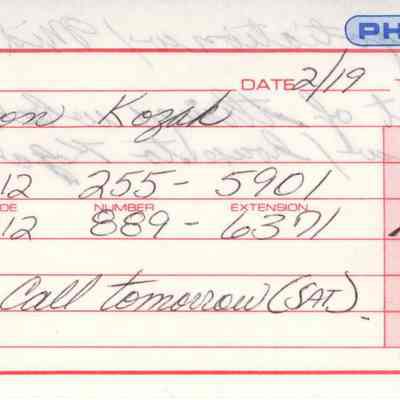 PH
DATE 2/19
on Kozak
12 255-5901
DE NUMBER EXTENSION
12 889-6371
Call tomorrow (SAT.)